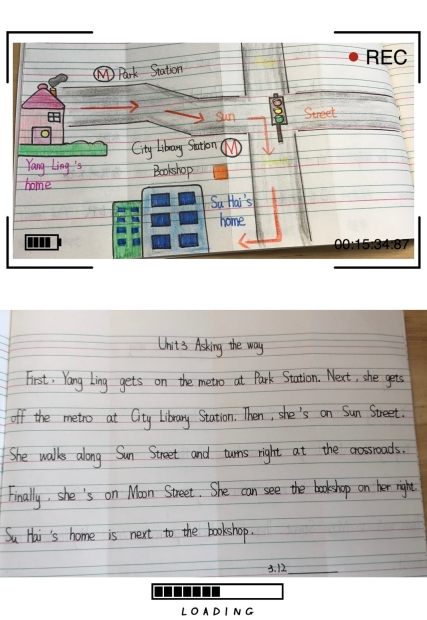 REC
M Park Station
Sun Street
City Library Station M
Bookshop
Yang Ling's
home
Su Hai's
home
00:15:34:87
Unit3 Asking the way
First, Yang Ling gets on the metro at Park Station. Next, she gets
off the metro at City Library Station. Then, she's on Sun Street.
She walks along Sun Street and turns right at the crossroads.
Finally, she's on Moon Street. She can see the bookshop on her right.
Su Hai's home is next to the bookshop.
3.12
LOADING